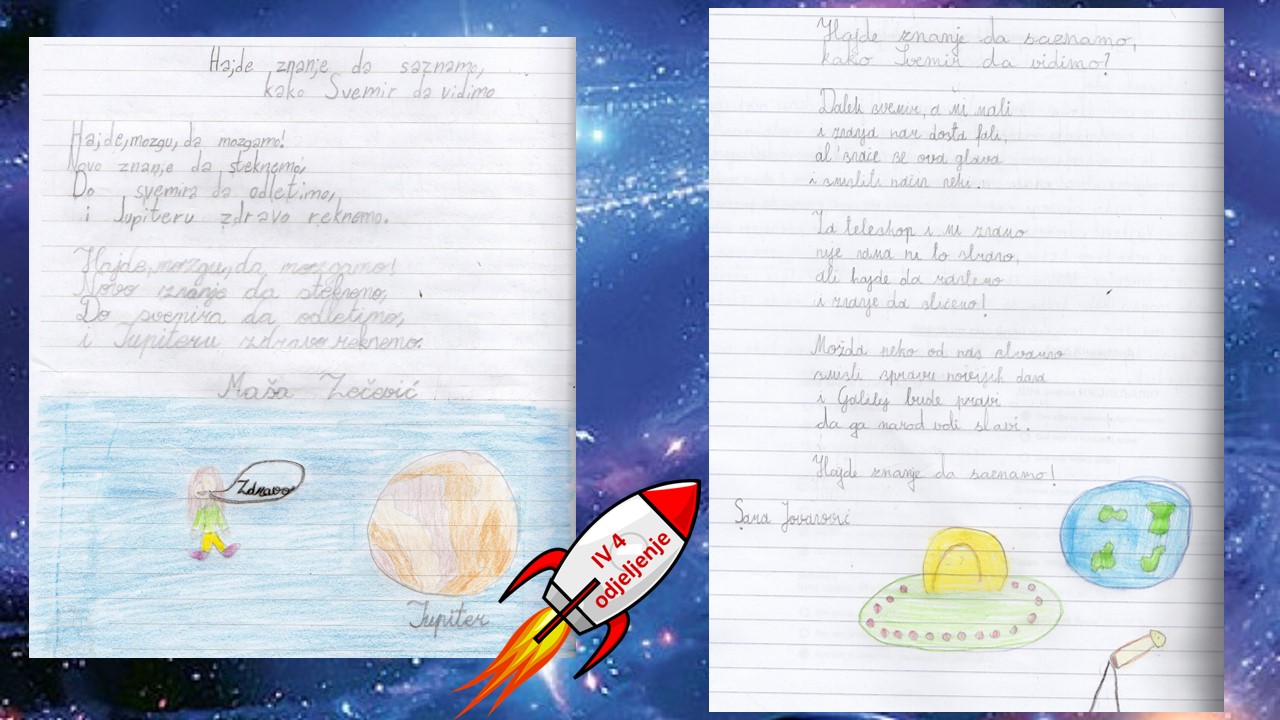 Hajde znanje da saznamo,
kako Svemir da vidimo
Hajde, mozgu, da mozgamo!
Novo znanje da steknemo,
Do svemira da odletimo,
i Jupiteru zdravo reknemo.
Hajde, mozgu, da mozgamo!
Novo znanje da steknemo,
Do svemira da odletimo,
i Jupiteru zdravo reknemo.
Maša Zečević
Zdravo
Jupiter
IV 4
odjeljenje
Hajde znanje da saznamo,
kako Svemir da vidimo?
Dalek svemir, a mi mali
i znanja nam dosta fali,
al' snaće se ova glava
i smisliti način neki.
Za teleskop i mi znamo
nije nama ni to strano,
ali hajde da rastemo
i znanje da stičemo!
Možda neko od nas stvarno
smisli spravu novijeh dana
i Galilej bude pravi
da ga narod voli slavi.
Hajde znanje da saznamo!
Sara Jovanović